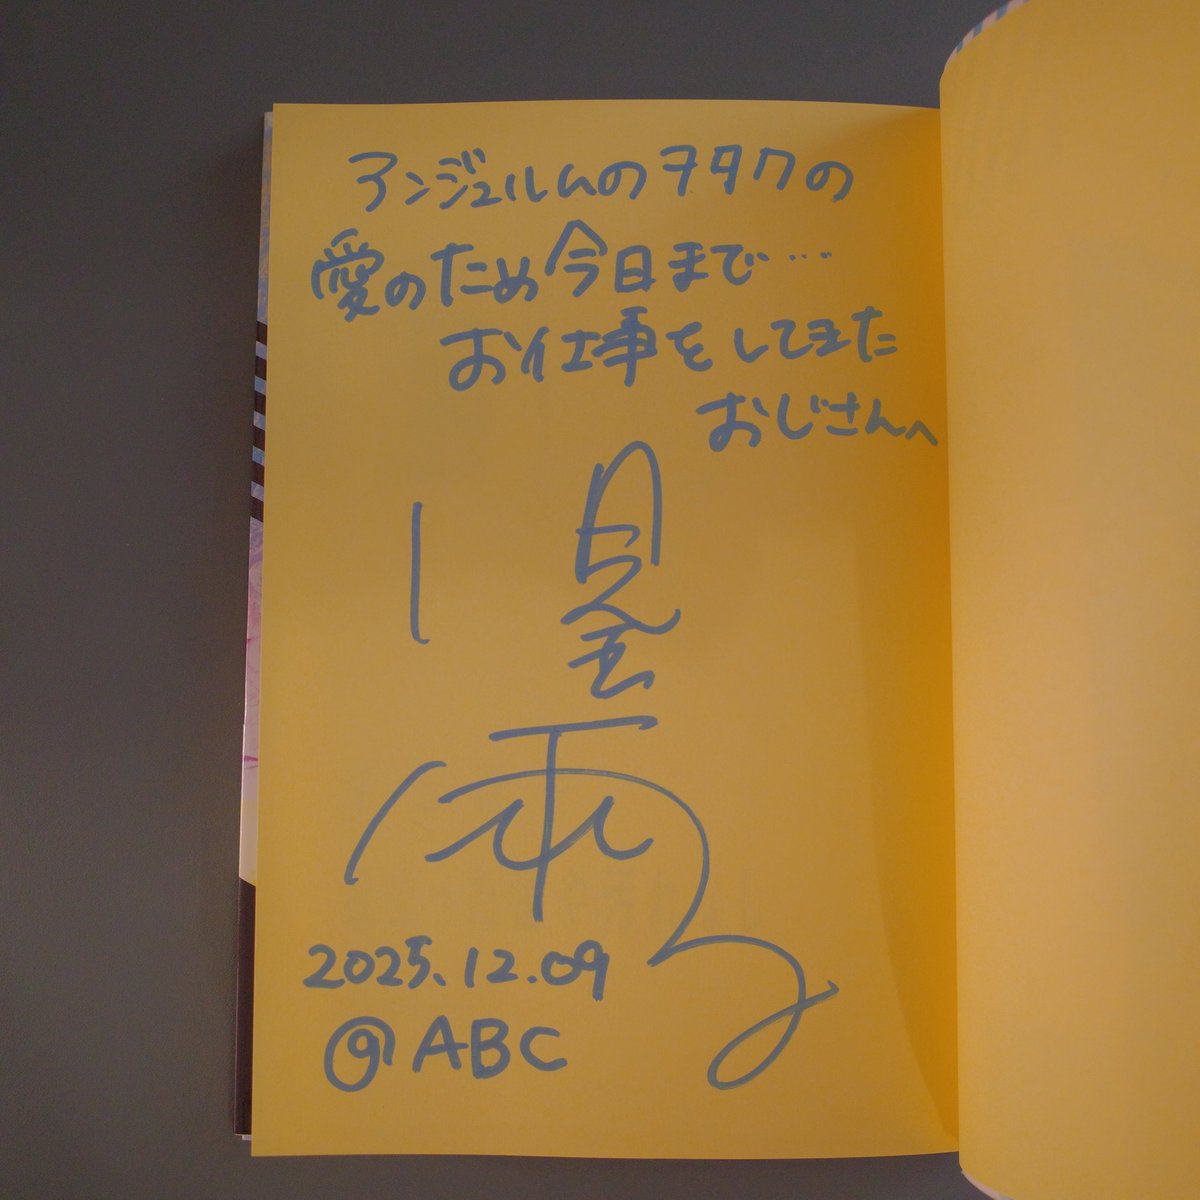 アンジュルムのヲタクの
愛のため今日まで…
お仕事をしてきた
おじさんへ
2025.12.09
@ABC